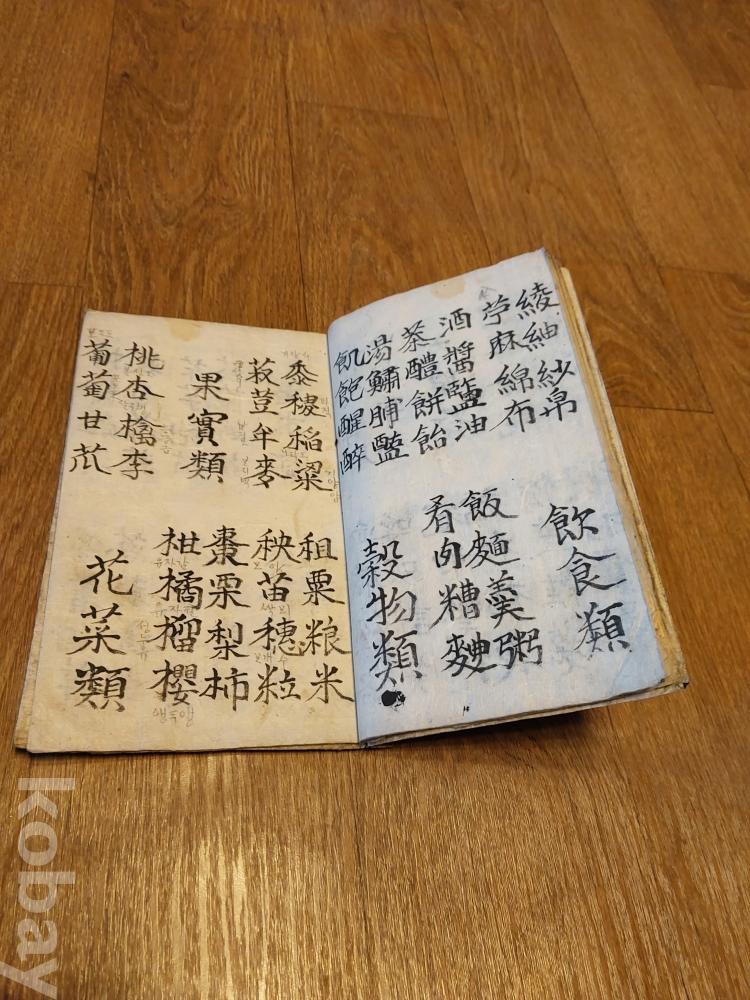 綾紬紗帛
苧麻綿布
飲食類
酒醬鹽油
飯麵羹粥
茶醴餠飴
肴肉糟麯
湯鱐脯
飢飽醒醉
穀物類
黍稷稻粱
租粟粮米
菽荳牟麥
秧苗穗粒
果實類
棗栗梨柿
桃杏檎李
柑橘榴櫻
유자감
앵두앵
葡萄甘苽
花菜類
kobay